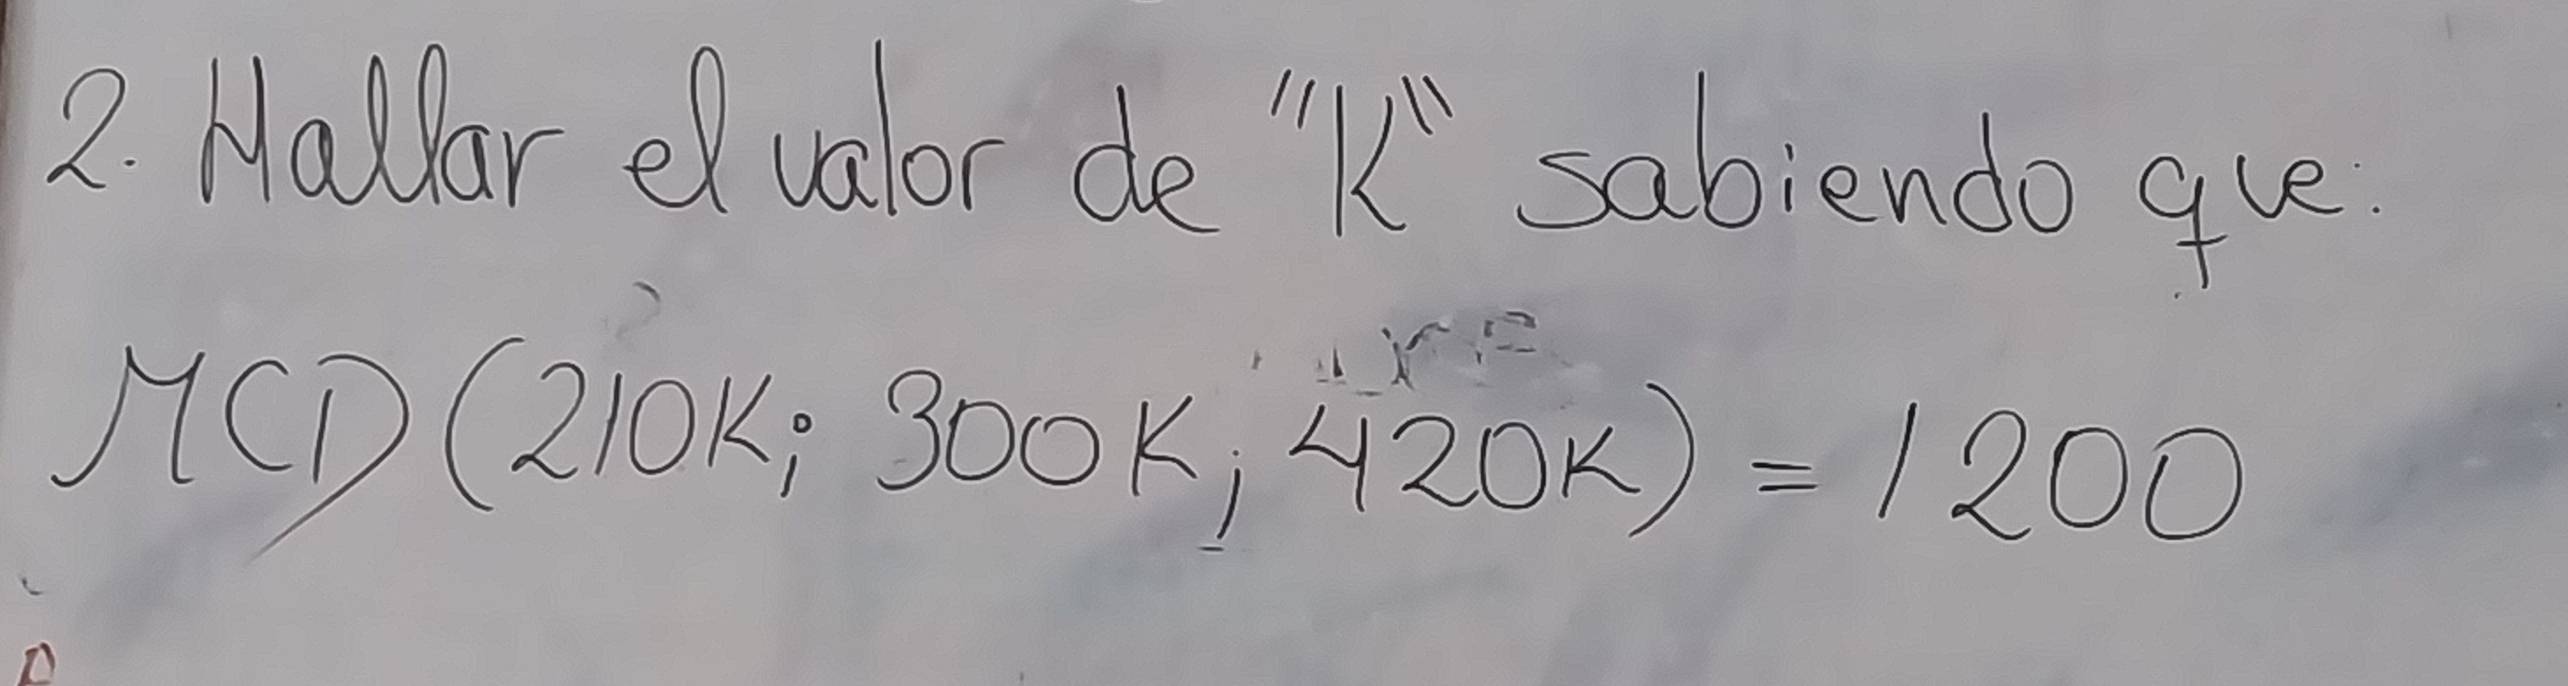 2. Hallar el valor de "K" sabiendo que:
MCD (210K; 300K; 420K) = 1200